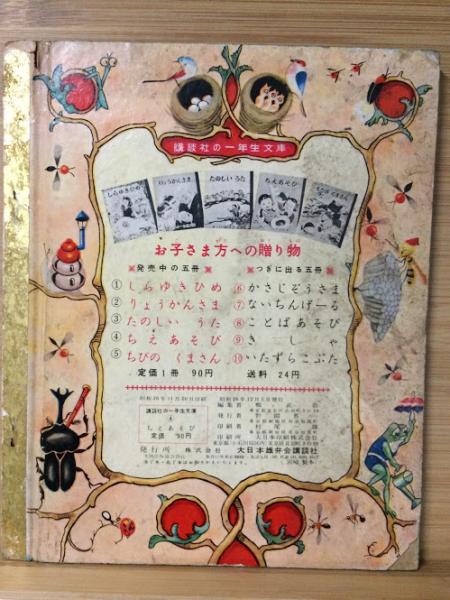 講談社の一年生文庫
しらゆきひめ
りょうかんさま
たのしい うた
ちえあそび
お子さま方への贈り物
発売中の五冊
つぎに出る五冊
①しらゆきひめ
⑥かさじぞうさま
②りょうかんさま
⑦ないちんげーる
③たのしい うた
⑧ことばあそび
④ちえあそび
⑨きしゃ
⑤ちびの くまさん
⑩いたずらこぶた
定価1冊 90円
送料 24円
講談社の一年生文庫
4
ちえあそび
定価 90円
編集者
発行者
印刷者
印刷所 大日本印刷株式会社
発行所 株式会社 大日本雄弁会講談社